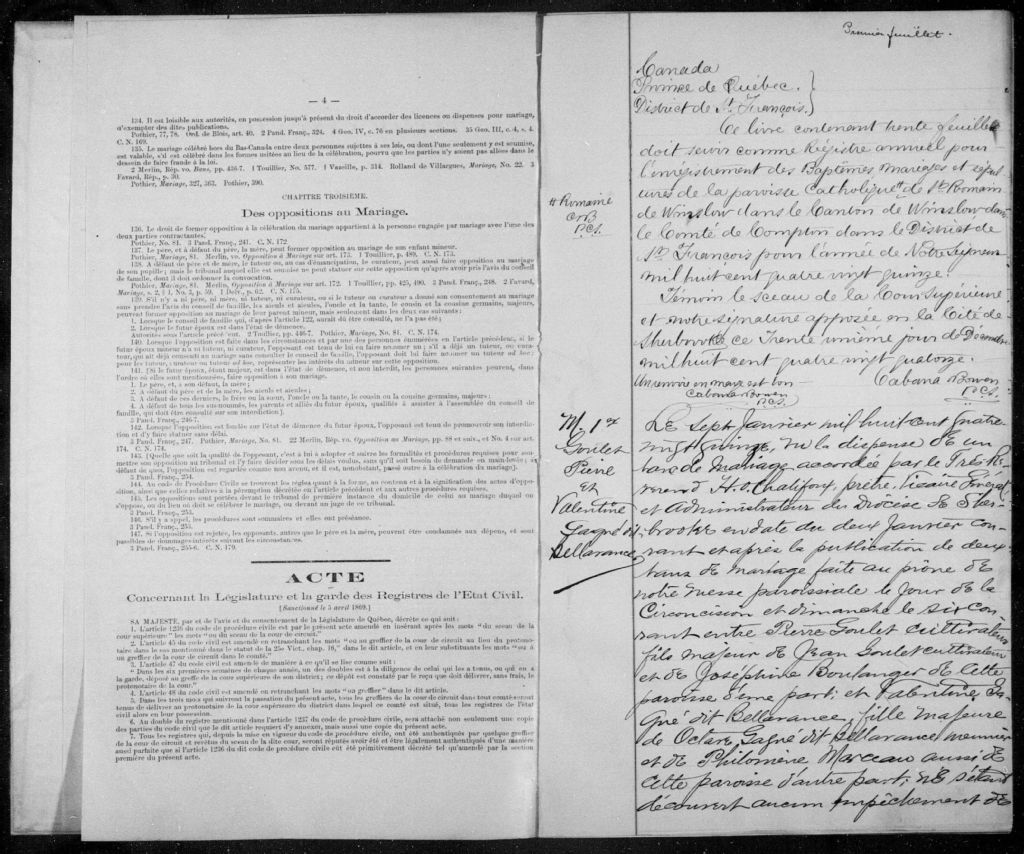 — 4 —
134. Il est loisible aux autorités, en possession jusqu'à présent du droit d'accorder des licences ou dispenses pour mariage,
d'exempter des dites publications.
Pothier, 77, 78. Ord. de Blois, art. 40. 2 Pand. Franç., 324. 4 Geo. IV, c. 76 en plusieurs sections. 35 Geo. III, c. 4, s. 4.
C. N. 169.
135. Le mariage célébré hors du Bas-Canada entre deux personnes sujettes à ses lois, ou dont l'une seulement y est soumise,
est valable, s'il est célébré dans les formes usitées au lieu de la célébration, pourvu que les parties n'y soient pas allées dans le
dessein de faire fraude à la loi.
2 Merlin, Rép. vo. Bans, pp. 436-7. 1 Touillier, No. 577. 1 Vazeille, p. 314. Rolland de Villargues, Mariage, No. 22. 3
Favard, Rép., p. 30.
Pothier, Mariage, 327, 363. Pothier, 390.
CHAPITRE TROISIÈME.
Des oppositions au Mariage.
136. Le droit de former opposition à la célébration du mariage appartient à la personne engagée par mariage avec l'une des
deux parties contractantes.
Pothier, No. 81. 3 Pand. Franç., 241. C. N. 172.
137. Le père, et à défaut du père, la mère, peut former opposition au mariage de son enfant mineur.
Pothier, Mariage, 81. Merlin, vo. Opposition à Mariage sur art. 173. 1 Touillier, p. 489. C. N. 173.
138. A défaut de père et de mère, le tuteur ou, au cas d'émancipation, le curateur, peut aussi faire opposition au mariage
de son pupille; mais le tribunal auquel elle est soumise ne peut statuer sur cette opposition qu'après avoir pris l'avis du conseil
de famille, dont il doit ordonner la convocation.
Pothier, Mariage, 81. Merlin, Opposition à Mariage sur art. 172. 1 Touillier, pp. 425, 490. 3 Pand. Franç., 248. 2 Favard,
Mariage, s. 2, § 1, No. 3, p. 59. 1 Delv., p. 62. C. N. 175.
139. S'il n'y a ni père, ni mère, ni tuteur, ni curateur, ou si le tuteur ou curateur a donné son consentement au mariage
sans prendre l'avis du conseil de famille, les aïeuls et aïeules, l'oncle et la tante, le cousin et la cousine germains, majeurs,
peuvent former opposition au mariage de leur parent mineur, mais seulement dans les deux cas suivants:
1. Lorsque le conseil de famille qui, d'après l'article 122, aurait dû être consulté, ne l'a pas été;
2. Lorsque le futur époux est dans l'état de démence.
Autorités sous l'article précédent. 2 Touillier, pp. 446-7. Pothier, Mariage, No. 81. C. N. 174.
140. Lorsque l'opposition est faite dans les circonstances et par une des personnes énumérées en l'article précédent, si le
futur époux mineur n'a ni tuteur, ni curateur, l'opposant est tenu de lui en faire nommer un; s'il a déjà un tuteur, ou curateur,
qui ait déjà consenti au mariage sans consulter le conseil de famille, l'opposant doit lui faire nommer un tuteur ad hoc;
pour les tuteur, curateur ou tuteur ad hoc, représenter les intérêts du mineur sur cette opposition.
141. Si le futur époux, étant majeur, est dans l'état de démence, et non interdit, les personnes suivantes peuvent, dans
l'ordre où elles sont mentionnées, faire opposition à son mariage.
1. Le père, et, à son défaut, la mère;
2. A défaut du père et de la mère, les aïeuls et aïeules;
3. A défaut de ces derniers, le frère ou la sœur, l'oncle ou la tante, le cousin ou la cousine germains, majeurs;
4. A défaut de tous les sus-nommés, les parents et alliés du futur époux, qualifiés à assister à l'assemblée du conseil de famille,
qui doit être consulté sur son interdiction.
3 Pand. Franç., 246-7.
142. Lorsque l'opposition est fondée sur l'état de démence du futur époux, l'opposant est tenu de promouvoir son interdiction
et d'y faire statuer sans délai.
3 Pand. Franç., 247. Pothier, Mariage, No. 81. 22 Merlin, Rép. vo. Opposition au Mariage, pp. 88 et suiv., et No. 4 sur art.
174. C. N. 174.
143. [Quelle que soit la qualité de l'opposant, c'est à lui à adopter et suivre les formalités et procédures requises pour soumettre
son opposition au tribunal et l'y faire décider sous les délais voulus, sans qu'il soit besoin de demande en main-levée; à
défaut de quoi, l'opposition est regardée comme non avenu, et il est, nonobstant, passé outre à la célébration du mariage].
3 Pand. Franç., 254.
144. Au code de Procédure Civile se trouvent les règles quant à la forme, au contenu et à la signification des actes d'opposition,
ainsi que celles relatives à la péremption décrétée en l'article précédent et aux autres procédures requises.
145. Les oppositions sont portées devant le tribunal de première instance du domicile de celui au mariage duquel on
s'oppose, ou du lieu où doit se célébrer le mariage, ou devant un juge de ce tribunal.
3 Pand. Franç., 253.
146. S'il y a appel, les procédures sont sommaires et elles ont préséance.
3 Pand. Franç., 253.
147. Si l'opposition est rejetée, les opposants, autres que le père et la mère, peuvent être condamnés aux dépens, et sont
passibles de dommages-intérêts suivant les circonstances.
3 Pand. Franç., 255-6. C. N. 179.
ACTE
Concernant la Législature et la garde des Registres de l'Etat Civil.
[Sanctionné le 5 avril 1869.]
SA MAJESTÉ, par et de l'avis et du consentement de la Législature de Québec, décrète ce qui suit:
1. L'article 1236 du code de procédure civile est par le présent acte amendé en insérant après les mots "du sceau de la
cour supérieure" les mots "ou du sceau de la cour de circuit."
2. L'article 45 du code civil est amendé en retranchant les mots "ou au greffier de la cour de circuit au lieu du protonotaire
dans le cas mentionné dans le statut de la 25e Vict., chap. 16," dans le dit article, et en leur substituant les mots "ou au
greffier de la cour de circuit dans le comté."
3. L'article 47 du code civil est amendé de manière à ce qu'il se lise comme suit:
"Dans les six premières semaines de chaque année, un des doubles est à la diligence de celui qui les a tenus, ou qui en a
la garde, déposé au greffe de la cour supérieure de son district; ce dépôt est constaté par le reçu que doit délivrer, sans frais, le
protonotaire de la cour."
4. L'article 48 du code civil est amendé en retranchant les mots "au greffier" dans le dit article.
5. Dans les trois mois qui suivront la passation du présent acte, tous les greffiers de la cour de circuit dans tout comté seront
tenus de délivrer au protonotaire de la cour supérieure du district dans lequel ce comté est situé, tous les registres de l'état
civil alors en leur possession.
6. Au double du registre mentionné dans l'article 1237 du code de procédure civile, sera attaché non seulement une copie
des parties du code civil que le dit article requiert d'y annexer, mais aussi une copie du présent acte.
7. Tous les registres qui, depuis la mise en vigueur du code de procédure civile, ont été authentiqués par quelque greffier
de la cour de circuit et revêtus du sceau de la dite cour, seront réputés avoir été et être légalement authentiqués d'une manière
aussi parfaite que si l'article 1236 du dit code de procédure civile eût été primitivement décrété tel qu'amendé par la section
première du présent acte.
Premier feuillet.
Canada
Province de Québec.
District de St. François.
Ce livre contenant trente feuillets
doit servir comme Régistre annuel pour
l'enregistrement des Baptêmes mariages et sépul
tures de la paroisse Catholique # de St. Romain
de Winslow dans le Canton de Winslow dans
le Comté de Compton dans le District de
St. François pour l'année de Notre Seigneur
mil huit cent quatre vingt quinze.
Témoin le sceau de la Cour Supérieure
et notre signature apposée en la Cité de
Sherbrooke ce Trente unième jour de Décembre
mil huit cent quatre vingt quatorze.
Un renvoi en marge est bon
Cabana Bowen
P.C.S.
Cabana Bowen
P.C.S.
# Romaine
C & B
P.C.S.
M. 1er
Goulet
Pierre
Et
Valentine
Gagné dit
Bellavance
Le sept Janvier mil huit cent quatre-
vingt quinze, vu la dispense de un
banc de mariage accordée par le Très Ré
verend H. O. Chalifoux, prêtre, Vicaire Général
et Administrateur du Diocèse de Sher-
brooke en date du deux Janvier cou-
rant et après la publication de deux
bans de mariage faite au prône de
notre messe paroissiale le jour de la
Circoncision et dimanche le six cou
rant entre Pierre Goulet cultivateur
fils majeur de Jean Goulet cultivateur
et de Joséphine Boulanger de cette
paroisse d'une part; et Valentine Ga
gné dit Bellavance, fille majeure
de Octave Gagné dit Bellavance meunier
et de Philomène Marceau aussi de
cette paroisse d'autre part; ne s'étant
découvert aucun empêchement de